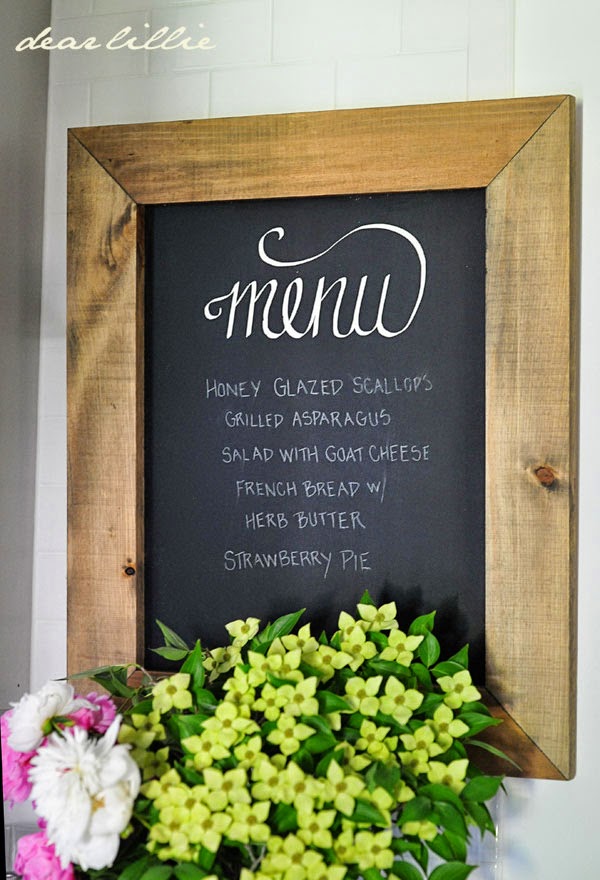 dear lillie
menu
HONEY GLAZED SCALLOPS
GRILLED ASPARAGUS
SALAD WITH GOAT CHEESE
FRENCH BREAD W/
HERB BUTTER
STRAWBERRY PIE